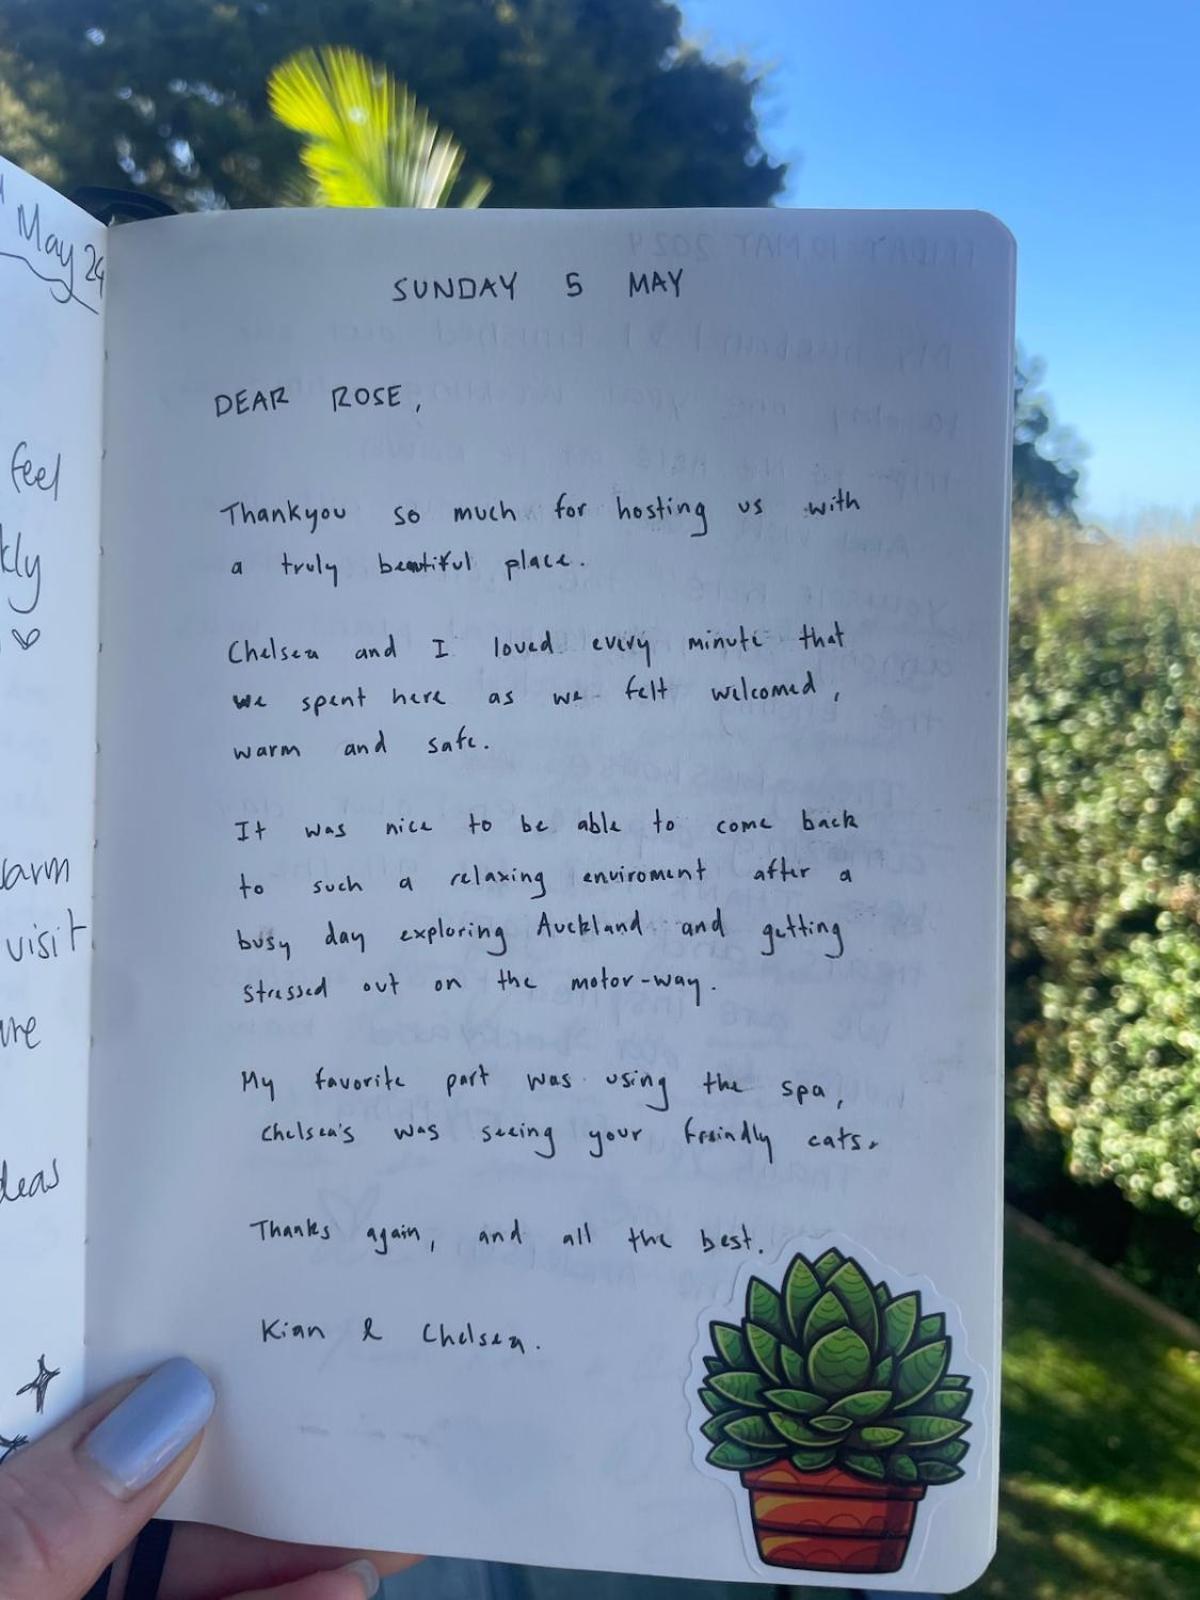 May 24
feel
kly
arm
visit
are
deas
SUNDAY 5 MAY
DEAR ROSE,
Thankyou so much for hosting us with
a truly beautiful place.
Chelsea and I loved every minute that
we spent here as we felt welcomed,
warm and safe.
It was nice to be able to come back
to such a relaxing enviroment after a
busy day exploring Auckland and getting
stressed out on the motor-way.
My favorite part was using the spa,
Chelsea's was seeing your freindly cats.
Thanks again, and all the best.
Kian & Chelsea.